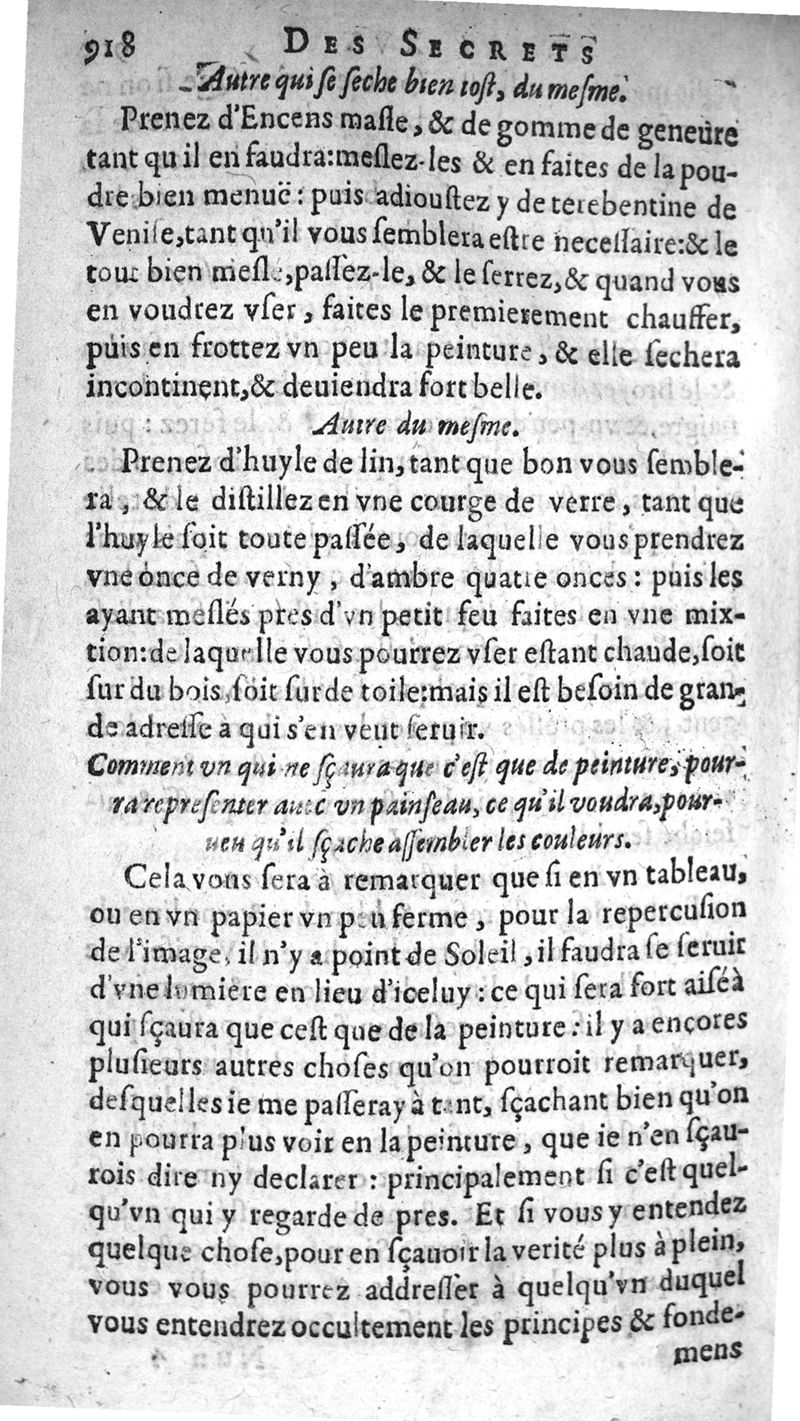 918 DES SECRETS
Autre qui ſe ſeche bien toſt, du meſme.
Prenez d'Encens maſle, & de gomme de geneure
tant qu'il en faudra: meſlez-les & en faites de la pou-
dre bien menuë: puis adiouſtez y de terebentine de
Veniſe, tant qu'il vous ſemblera eſtre neceſſaire: & le
tout bien meſlé, paſſez-le, & le ſerrez, & quand vous
en voudrez vſer, faites le premierement chauffer,
puis en frottez vn peu la peinture, & elle ſechera
incontinent, & deuiendra fort belle.
Autre du meſme.
Prenez d'huyle de lin, tant que bon vous ſemble-
ra, & le diſtillez en vne courge de verre, tant que
l'huyle ſoit toute paſſée, de laquelle vous prendrez
vne once de verny, d'ambre quatre onces: puis les
ayant meſlés pres d'vn petit feu faites en vne mix-
tion: de laquelle vous pourrez vſer eſtant chaude, ſoit
ſur du bois, ſoit ſur de toile: mais il eſt beſoin de gran-
de adreſſe à qui s'en veut ſeruir.
Comment vn qui ne ſçaura que c'eſt que de peinture, pour-
ra repreſenter auec vn painſeau, ce qu'il voudra, pour-
ueu qu'il ſçache aſſembler les couleurs.
Cela vous ſera à remarquer que ſi en vn tableau,
ou en vn papier vn peu ferme, pour la repercuſion
de l'image, il n'y a point de Soleil, il faudra ſe ſeruir
d'vne lumiere en lieu d'iceluy: ce qui ſera fort aiſé à
qui ſçaura que ceſt que de la peinture: il y a encores
pluſieurs autres choſes qu'on pourroit remarquer,
deſquelles ie me paſſeray à tant, ſçachant bien qu'on
en pourra plus voir en la peinture, que ie n'en ſçau-
rois dire ny declarer: principalement ſi c'eſt quel-
qu'vn qui y regarde de pres. Et ſi vous y entendez
quelque choſe, pour en ſçauoir la verité plus à plein,
vous vous pourrez addreſſer à quelqu'vn duquel
vous entendrez occultement les principes & fonde-
mens